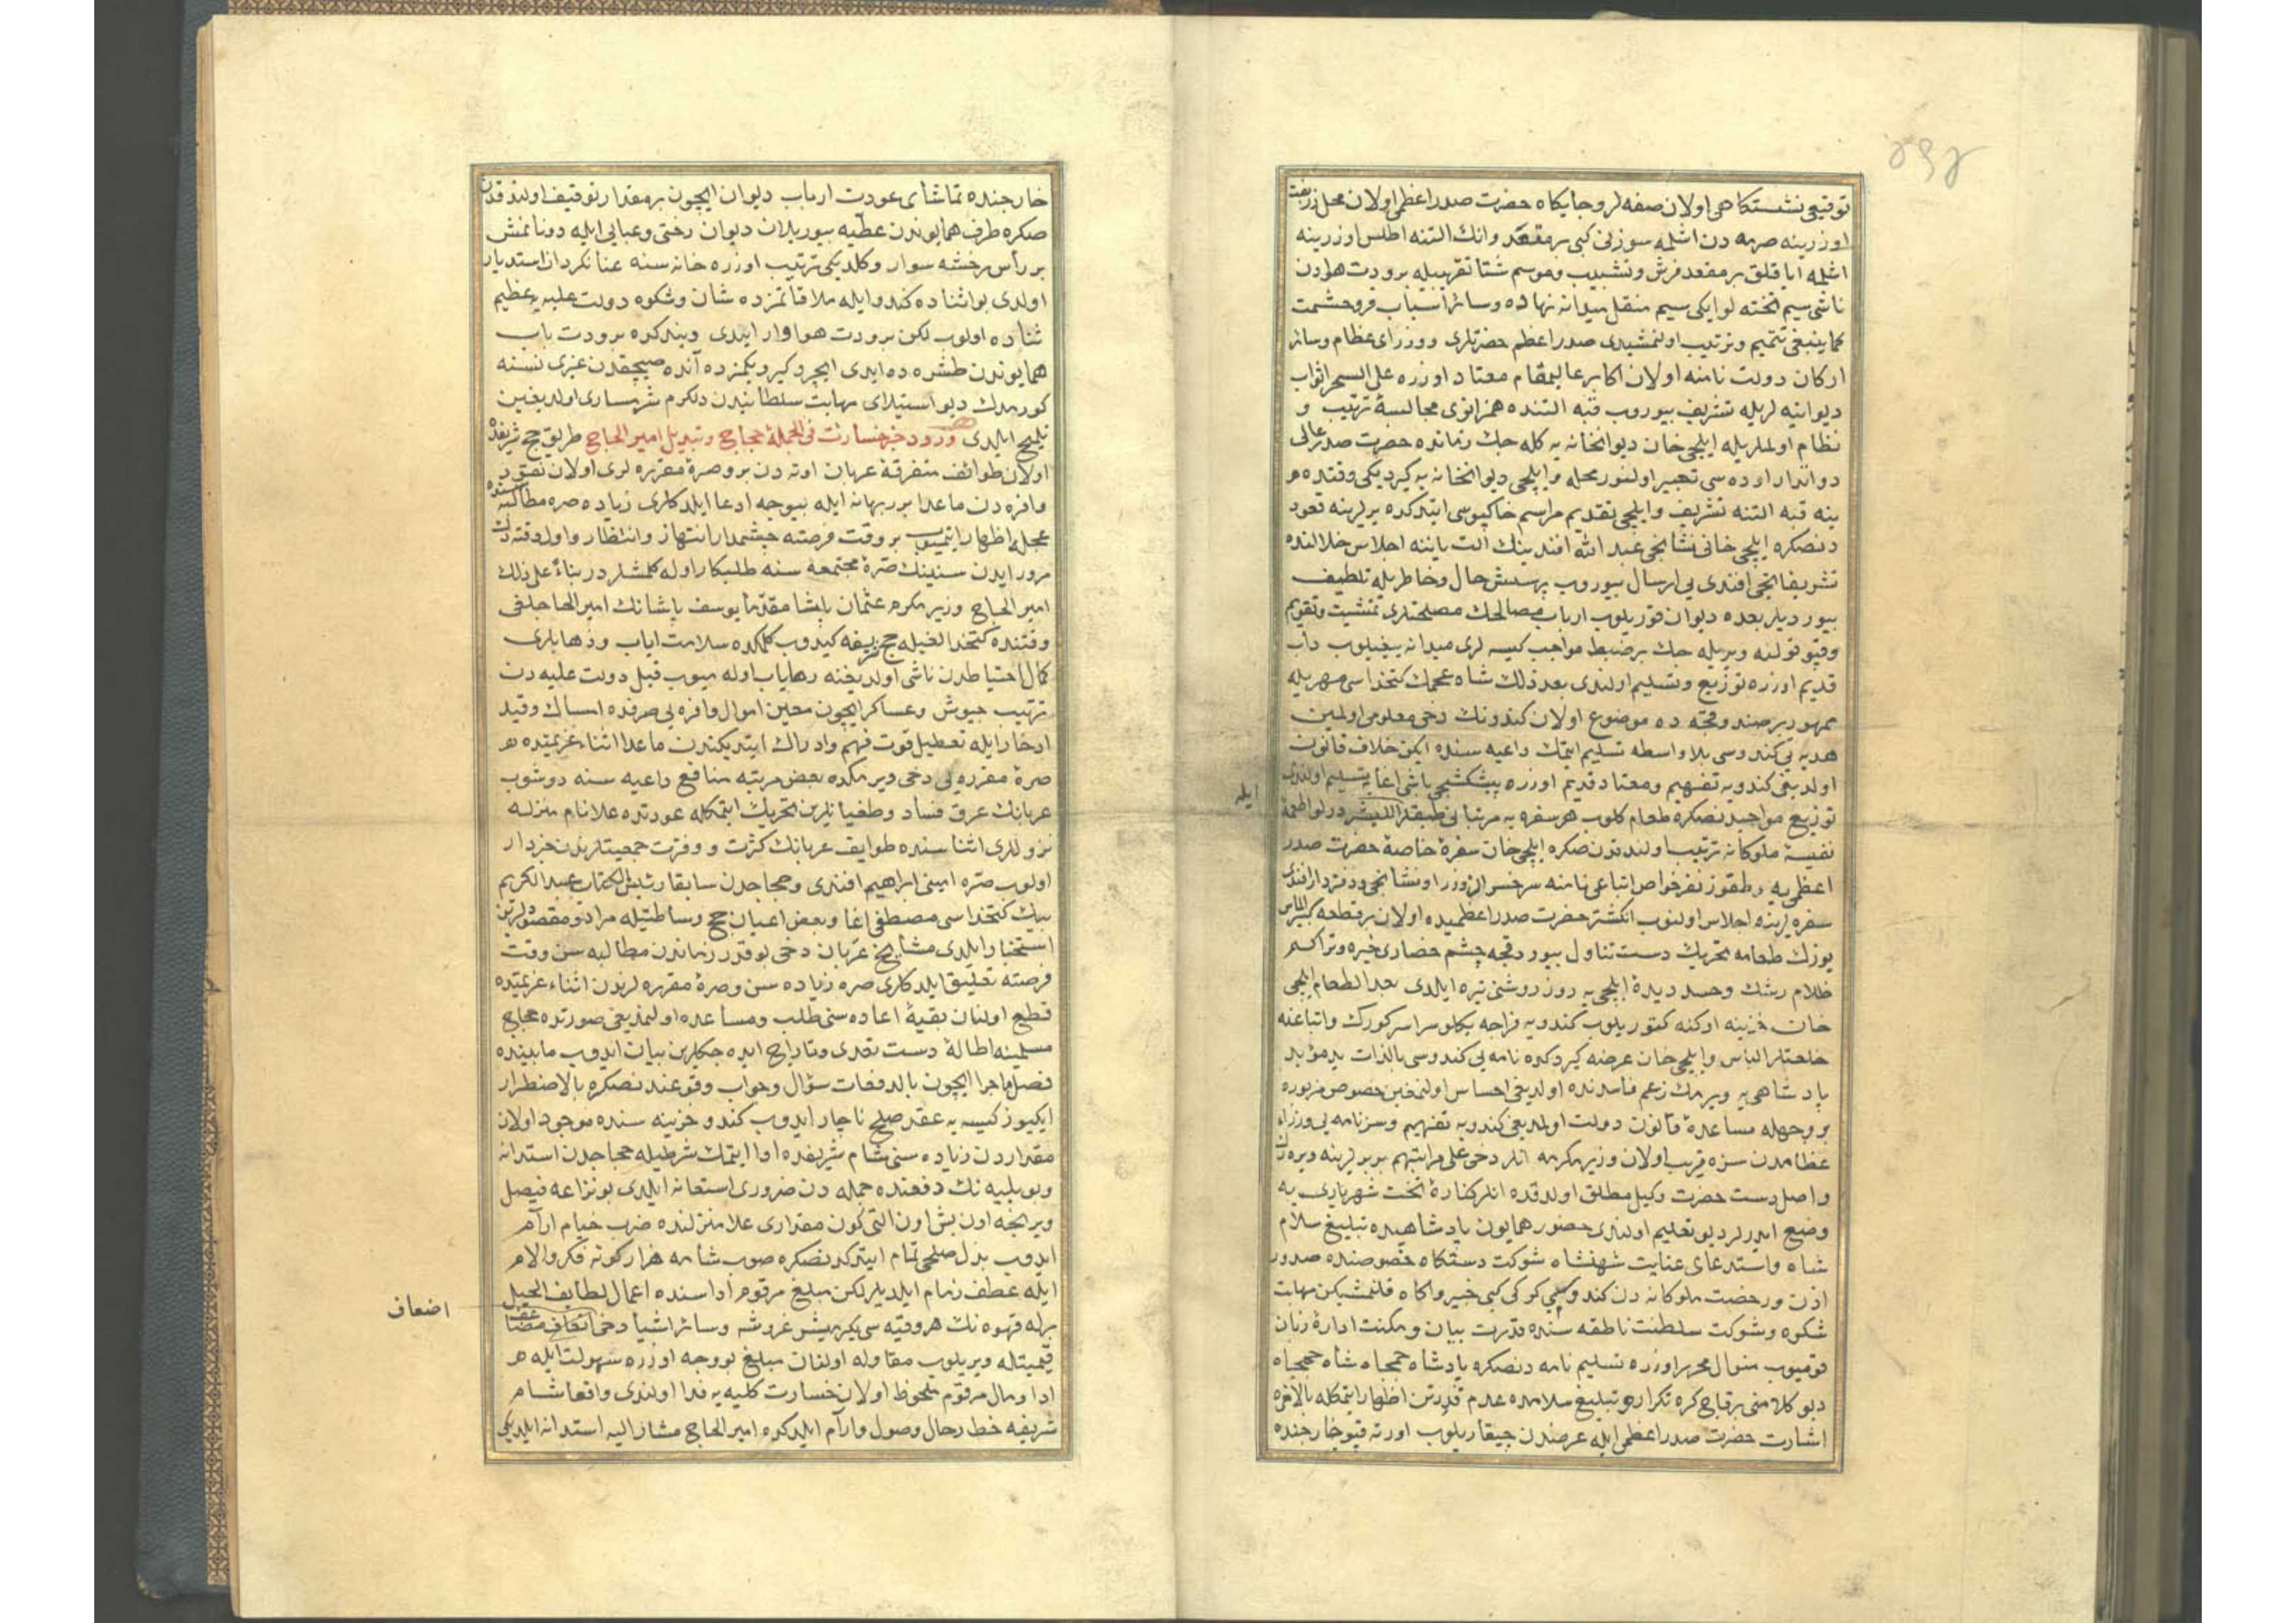 توقیعی نشستكاهی اولان صفه لر وجایكاه حضرت صدراعظمی اولان محل زربفت
اوزرینه صرمه دن اشلمه سوزنی كبی بر مقعد وانك التنه اطلس اوزرینه
اشلمه ایاقلق بر مقعد فرش وتشبیب وموسم شتا تقریبیله برودت هوادن
ناشی سیم تخته لو ایكی سیم منقل میدانه نهاده وسائر اسباب فر وحشمت
كما ینبغی تتمیم وترتیب اولنمشیدی صدراعظم حضرتلری ووزرای عظام وسائر
اركان دولت نامنه اولان اكابر عالیمقام معتاد اوزره علی السحر اثواب
دیوانیه لریله تشریف بیوروب قبه التنده همزانوی مجالسهٔ ترتیب و
نظام اولملریله ایلچی خان دیوانخانه یه كله جك زمانده حضرت صدرعالی
دواتدار اوده سی تعبیر اولنور محله وایلچی دیوانخانه یه كیردیكی وقتده
ینه قبه التنه تشریف وایلچی تقدیم مراسم خاكبوسی ایتدكده یرلرینه قعود
دنصكره ایلچی خانی نشانجی عبد الله افندینك الت یاننه اجلاس خلالنده
تشریفاتجی افندی یی ارسال بیوروب پرسش حال وخاطریله تلطیف
بیوردیلر بعده دیوان قوریلوب ارباب مصالحك مصلحتلری تمشیت وتقویم
وقپو قولنه ویریله جك بر ضبط مواجب كیسه لری میدانه ییغیلوب دأب
قدیم اوزره توزیع وتسلیم اولندی بعد ذلك شاه عجمك كتخداسی مهریله
ممهور بر صندوقچه ده موضوع اولان كندونك دخی معلومی اولمین
هدیه یی كندوسی بلا واسطه تسلیم ایتمك داعیه سنده ایكن خلاف قانون
اولدیغی كندویه تفهیم ومعتاد قدیم اوزره پیشكشجی باشی اغایه تسلیم اولندی
ایله
توزیع مواجبدنصكره طعام كلوب هر سفره یه مرتبا نی طبقلر اللیشر درلو اطعمهٔ
نفیسهٔ ملوكانه ترتیب اولندقدن صكره ایلچی خان سفرهٔ خاصهٔ حضرت صدر
اعظمی یه وطقوز نفر خواص اتباعی نامنه سرخسر الوزرا ونشانجی ودفتردار افندی
سفره لرینه اجلاس اولنوب انكشتر حضرت صدراعظمیده اولان بر قطعه كبیر الماس
یوزك طعامه تحریك دست تناول بیوردقجه چشم حضاری خیره وتراكم
ظلام رشك وحسد دیدهٔ ایلچی یه روز روشنی تیره ایلدی بعد الطعام ایلچی
خان خزینه اوكنه كتوریلوب كندویه فراجه یكلو سراسر كورك واتباعنه
خلعتلر الباس وایلچی خان عرضه كیردكده نامه یی كندوسی بالذات ید مؤید
پادشاهی یه ویرمك زعم فاسدنده اولدیغی احساس اولنمغین خصوص مزبوره
بر وجهله مساعدهٔ قانون دولت اولمدیغی كندویه تفهیم وسز نامه یی وزراء
عظامدن سزه قریب اولان وزیر مكرمه انلر دخی علی مراتبهم بربرلرینه ویره رك
واصل دست حضرت وكیل مطلق اولدقده انلر كنارهٔ تخت شهریاری یه
وضع ایدرلر دیو تعلیم اولندی حضور همایون پادشاهیده تبلیغ سلام
شاه واستدعای عنایت شهنشاه شوكت دستكاه خصوصنده صدور
اذن ورخصت ملوكانه دن كندوسی كركی كبی خبیر واكاه قلنمشیكن مهابت
شكوه وشوكت سلطنت ناطقه سنده قدرت بیان ومكنت ادارهٔ زبان
قومیوب منوال محرر اوزره تسلیم نامه دنصكره پادشاه جمجاه شاه جمجاه
دیو كلامنی بر قاچ كره تكرار وتبلیغ سلامده عدم قدرتن اظهار ایتمكله بالآخره
اشارت حضرت صدراعظمی ایله عرضدن چیقاریلوب اورته قپو خارجنده
خارجنده تماشای عودت ارباب دیوان ایچون بر مقدار توقیف اولندقدن
صكره طرف همایوندن عطیه بیوریلان دیوان رختی وعبایی ایله دونانمش
بر رأس رخشه سوار وكلدیكی ترتیب اوزره خانه سنه عنانكردان استدبار
اولدی بو اثناده كندو ایله ملاقاتمزده شان وشكوه دولت علیه یه عظیم
ثناده اولوب لكن برودت هوا وار ایدی ویندكره برودت باب
همایوندن طشره ده ایدی ایچرو كیردیكمزده آنده صیجقدن غیری نسنه
كورمدك دیو استیلای مهابت سلطانیدن دلكرم شرمساری اولدیغین
تلمیح ایلدی ورود خبر خسارت فی الجملهٔ حجاج وتبدیل امیر الحاج طریق حج شریفده
اولان طوائف متفرقهٔ عربان اوته دن برو صرهٔ مقرره لری اولان نقود
وافره دن ماعدا بر بهانه ایله بیوجه ادعا ایلدكلری زیاده صره مطالبه سنده
عجله اظهار ایتمیوب بر وقت فرصته چشمدار انتهاز وانتظار واول وقته دك
مرور ایدن سنینك صرهٔ مجتمعه سنه طلبكار اوله كلمشلردر بناءً علی ذلك
امیر الحاج وزیر مكرم عثمان پاشا مقدّما یوسف پاشانك امیر الحاجلغی
وقتنده كتخدالغیله حج شریفه كیدوب كلمكده سلامت ایاب وذهابلری
كمال احتیاطدن ناشی اولدیغنه رهایاب اوله میوب قبل دولت علیه دن
ترتیب جیوش وعساكر ایچون معین اموال وافره یی صرفده امساك وقید
ادخار ایله تعطیل قوت فهم وادراك ایتدیكندن ماعدا اثناء عزیمتده
صرهٔ مقرره یی دخی ویرمكده بعض مرتبه منافع داعیه سنه دوشوب
عربانك عرق فساد وطغیانلرین تحریك ایتمكله عودتده علا نام منزله
نزوللری اثناسنده طوایف عربانك كثرت ووفرت جمعیتلرندن خبردار
اولوب صره امینی ابراهیم افندی وحجاجدن سابقا رئیس الكتاب عبدالكریم
بیك كتخداسی مصطفی اغا وبعض اعیان حج وساطتیله مراد ومقصودلرین
استخبار ایلدی مشایخ عربان دخی بو قدر زماندن مطالبه سن وقت
فرصته تعلیق ایلدكلری صره زیاده سن وصرهٔ مقرره لرندن اثناء عزیمتده
قطع اولنان بقیهٔ اعاده سنی طلب ومساعده اولنمدیغی صورتده حجاج
مسلمینه اطالهٔ دست تعدی وتاراج ایده جكلرین بیان ایدوب مابینده
فصل ماجرا ایچون بالدفعات سؤال وجواب وقوعندنصكره بالاضطرار
ایكیوز كیسه یه عقد صلح ناچار ایدوب كندو خزینه سنده موجود اولان
مقداردن زیاده سنی شام شریفده ادا ایتمك شرطیله حجاجدن استدانه
وبو بلیه نك دفعنده جمله دن ضروری استعانه ایلدی بو نزاعه فیصل
ویرلنجه اون بش اون التی كون مقداری علا منزلنده ضرب خیام آرام
ایدوب بدل صلحی تمام ایتدكدنصكره صوب شامه هزار كونه فكر والام
ایله عطف زمام ایلدیلر لكن مبلغ مرقوم اداسنده اعمال لطایف الحیل
برله قهوه نك هر وقیه سی یكرمیشر غروشه وسائر اشیا دخی اضعاف مضاعف
اضعاف
قیمتیله ویریلوب مقاوله اولنان مبلغ بو وجه اوزره سهولت ایله
ادا ومال مرقوم ملحوظ اولان خسارت كلیه یه فدا اولندی واقعا شام
شریفه حط رحال وصول وآرام ایلدكده امیر الحاج مشار الیه استدانه ایلدیكی